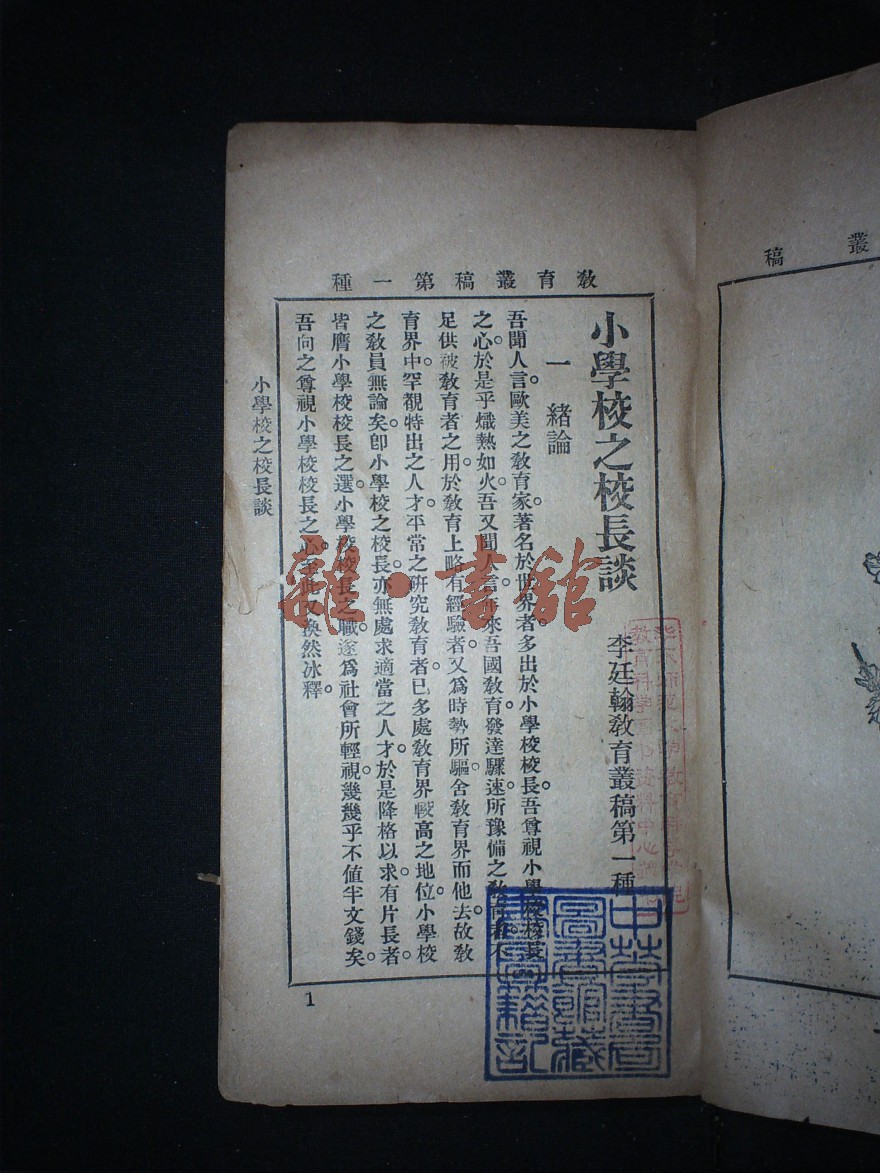 教育叢稿第一種
小學校之校長談
李廷翰教育叢稿第一種
一 緒論
吾聞人言。歐美之敎育家。著名於世界者。多出於小學校校長。吾尊視小學校校長
之心。於是乎熾熱如火。吾又聞人言。年來吾國敎育。發達驟速。所豫備之敎育者。不
足供被敎育者之用。於敎育上略有經驗者。又爲時勢所驅。舍敎育界而他去。故敎
育界中。罕覩特出之人才。平常之硏究敎育者。已多處敎育界較高之地位。小學校
之敎員無論矣。卽小學校之校長。亦無處求適當之人才。於是降格以求。有片長者。
皆膺小學校校長之選。小學校校長之職。遂爲社會所輕視。幾幾乎不値半文錢矣。
吾向之尊視小學校校長之心。至此又渙然冰釋。
小學校之校長談
1
中華書局
圖書館藏
書籍記
雜·書館
叢
稿